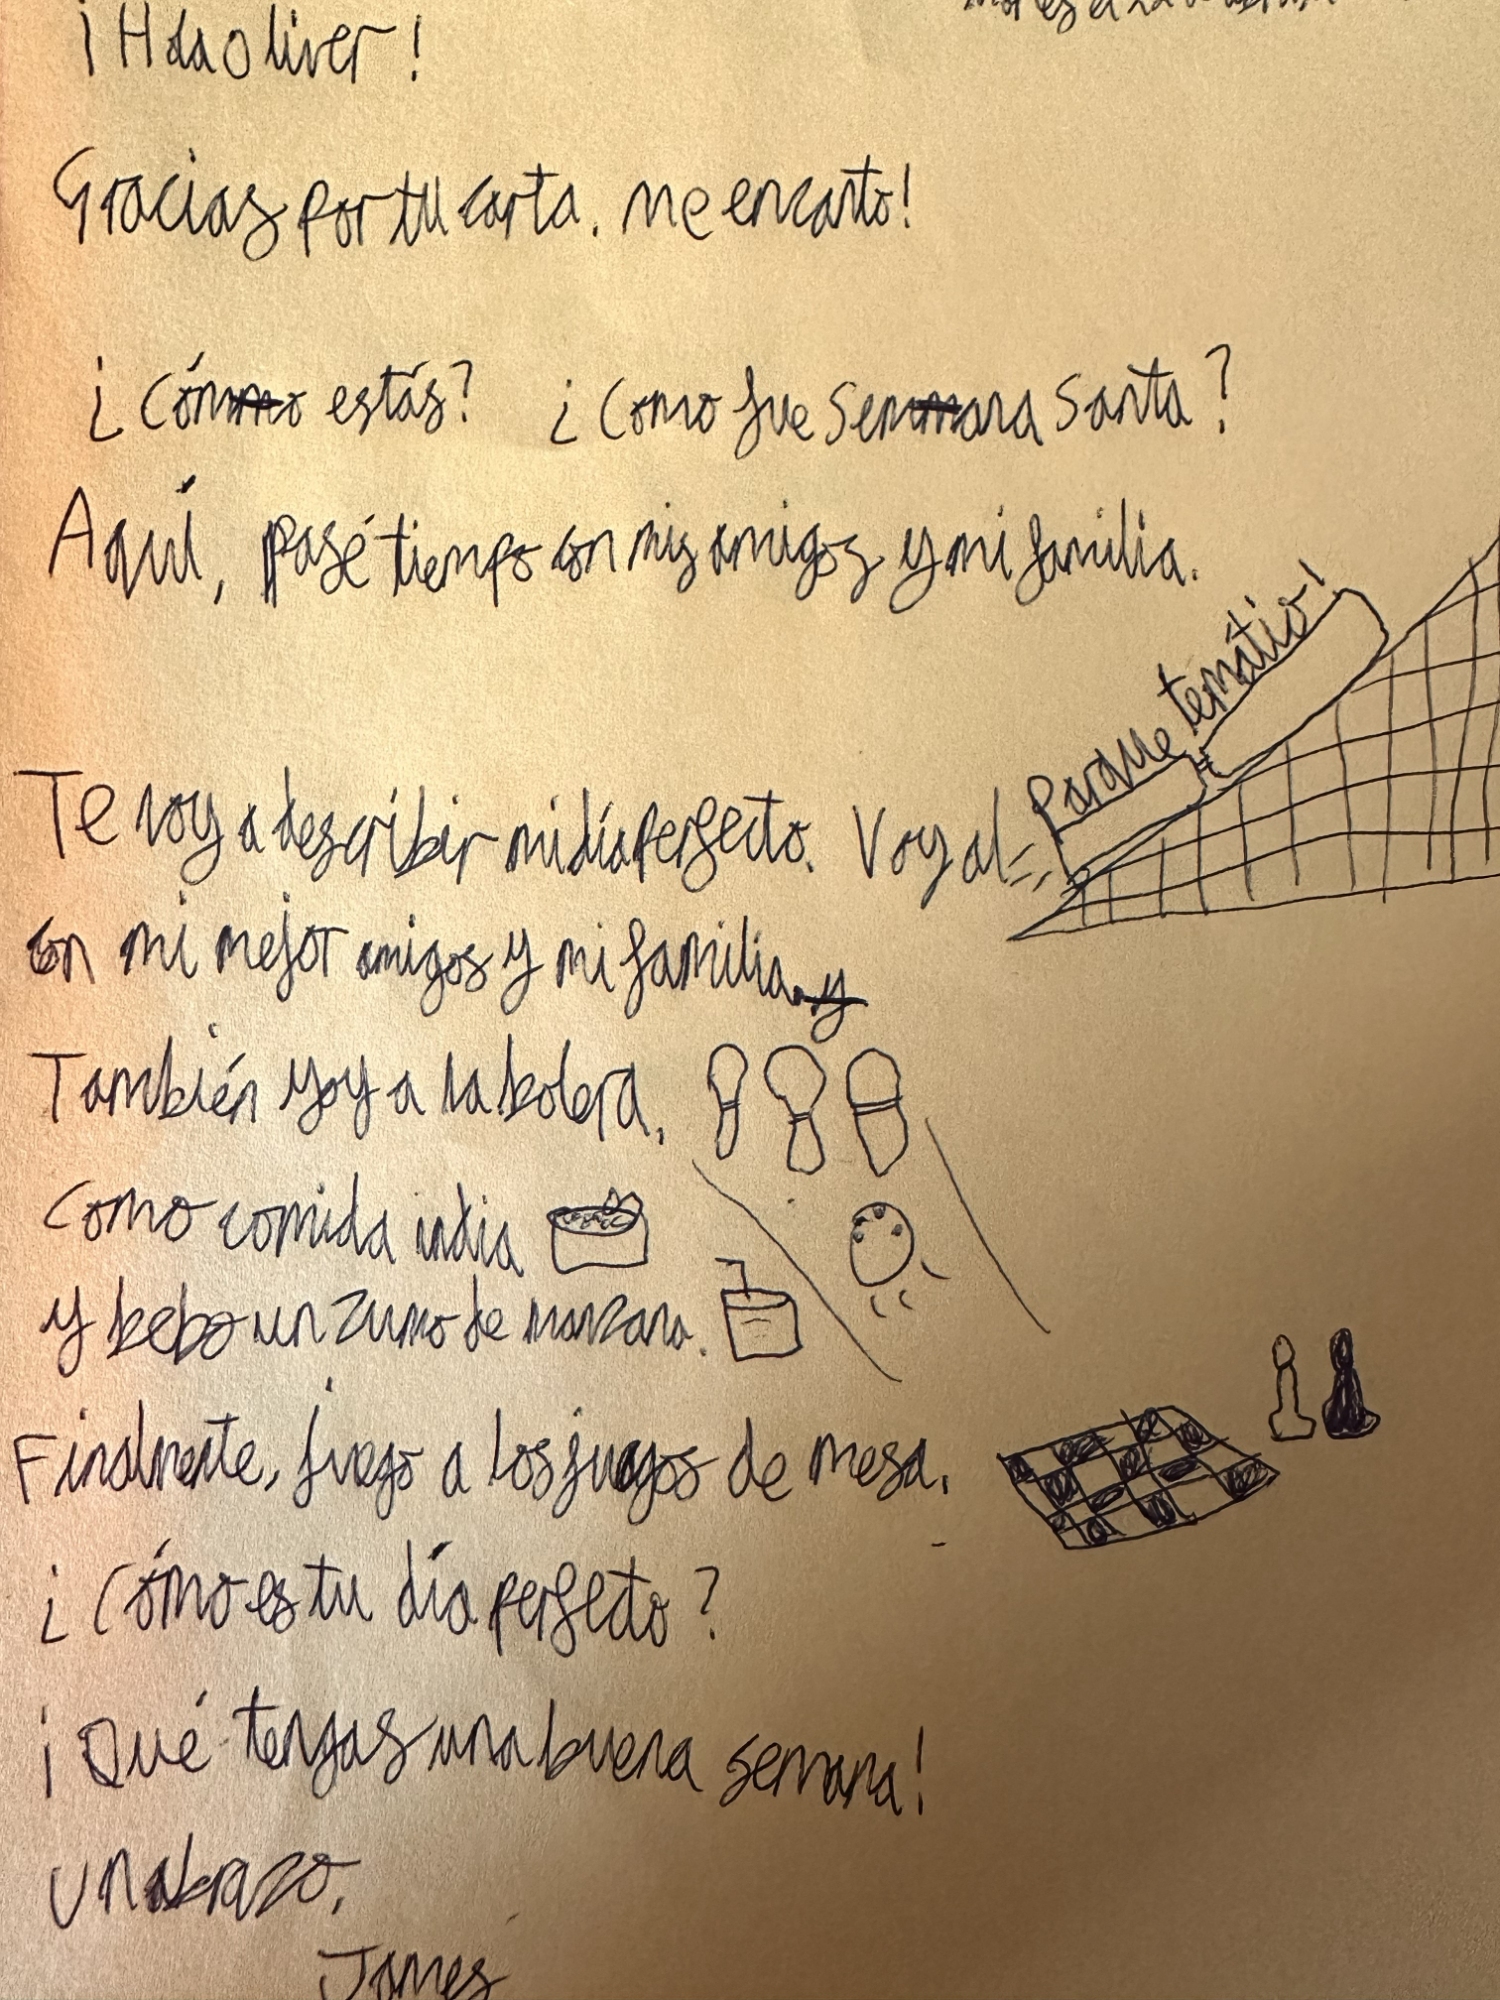 ¡Hola Oliver!
Gracias por tu carta. Me encanto!
¿Cómo estás? ¿Como fue Semana Santa?
Aquí, pasé tiempo con mis amigos y mi familia.
Parque temátio!
Te voy a describir mi día perfecto. Voy al
con mi mejor amigos y mi familia. y
También voy a la bolera.
Como comida india
y bebo un zumo de manzana.
Finalmente, juego a los juegos de mesa.
¿Cómo es tu día perfecto?
¡Qué tengas una buena semana!
Un abrazo,
James